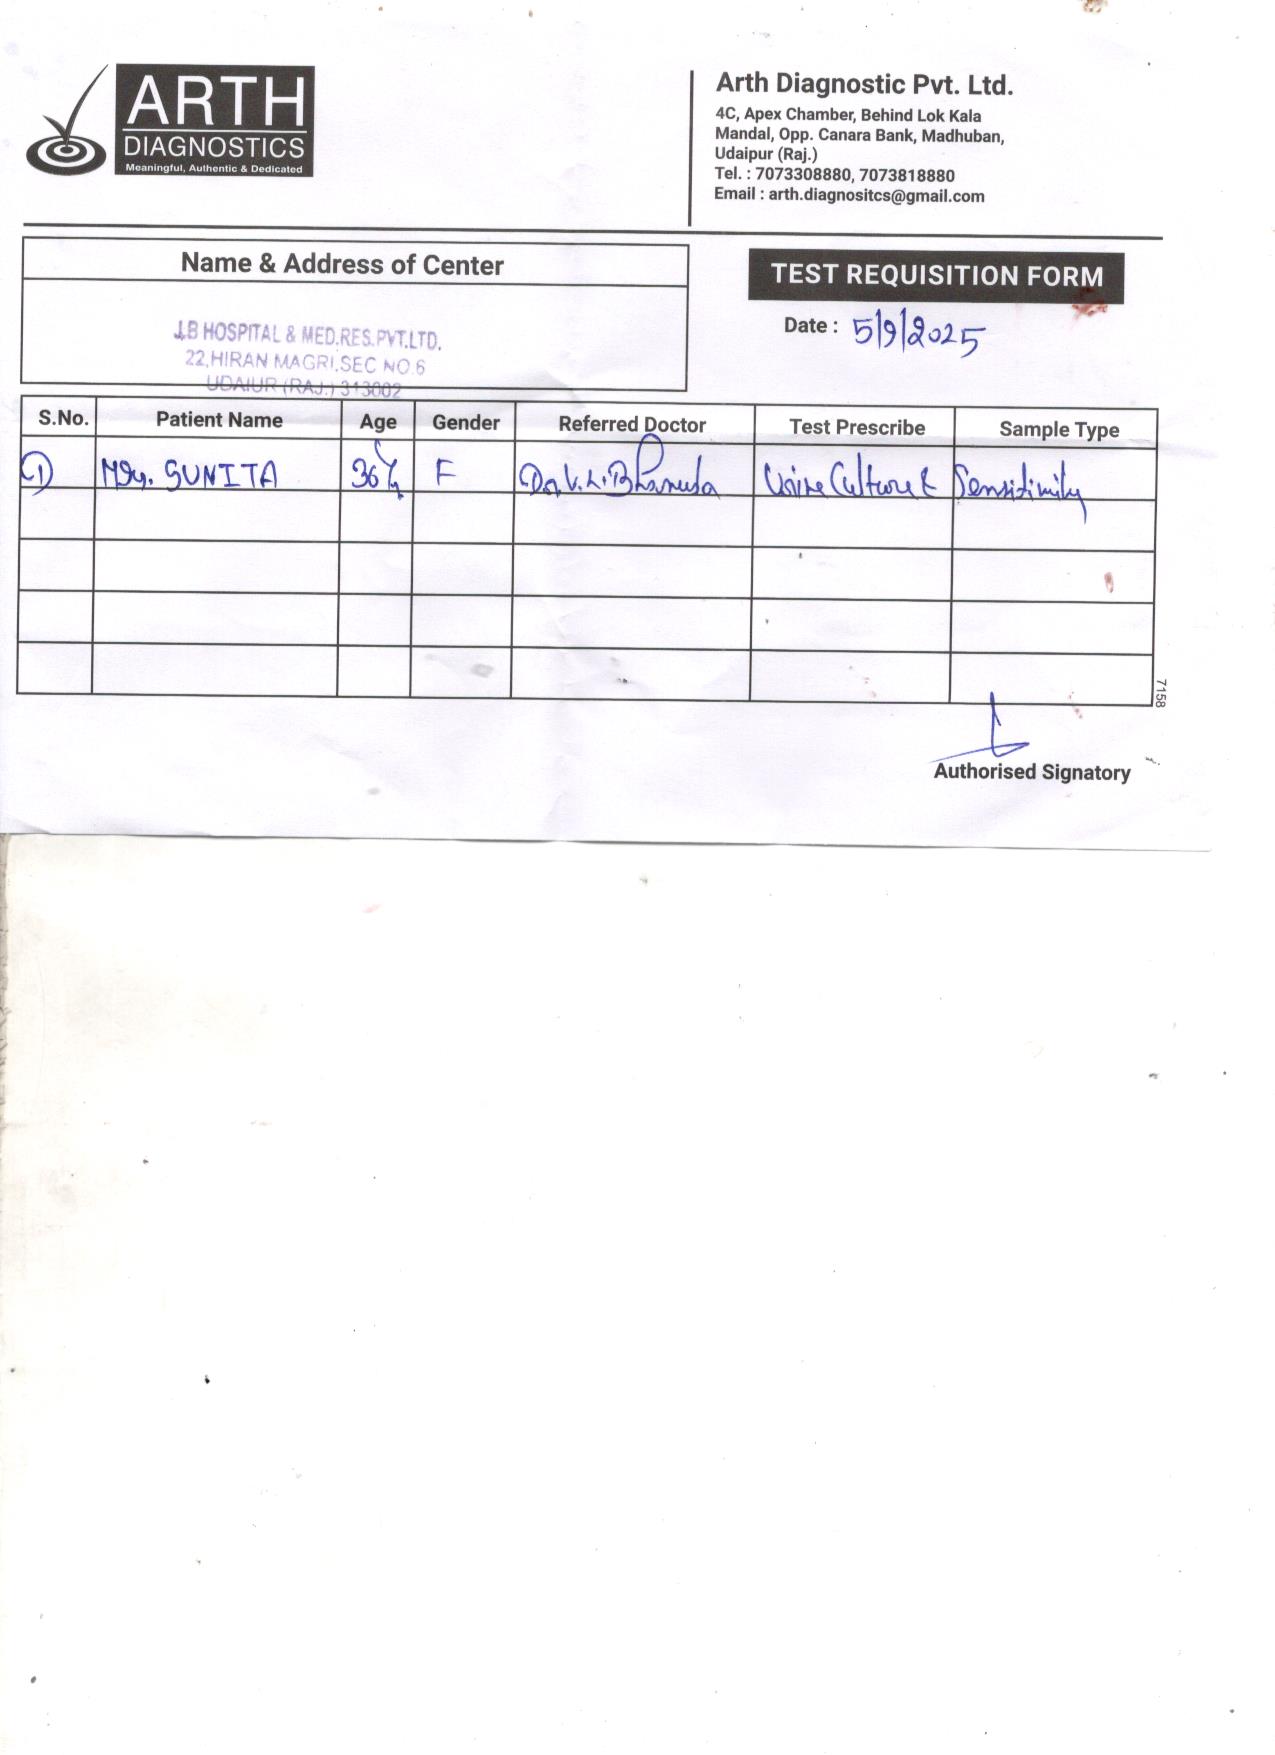 ARTH
DIAGNOSTICS
Meaningful, Authentic & Dedicated
Arth Diagnostic Pvt. Ltd.
4C, Apex Chamber, Behind Lok Kala
Mandal, Opp. Canara Bank, Madhuban,
Udaipur (Raj.)
Tel. : 7073308880, 7073818880
Email : arth.diagnositcs@gmail.com
Name & Address of Center
J.B HOSPITAL & MED.RES.PVT.LTD.
22,HIRAN MAGRI,SEC NO.6
UDAIUR (RAJ.) 313002
TEST REQUISITION FORM
Date : 5/9/2025
S.No. Patient Name Age Gender Referred Doctor Test Prescribe Sample Type
1) SUNITA 36 F Dr. V. L. Urine Culture & Sensitivity
7158
Authorised Signatory